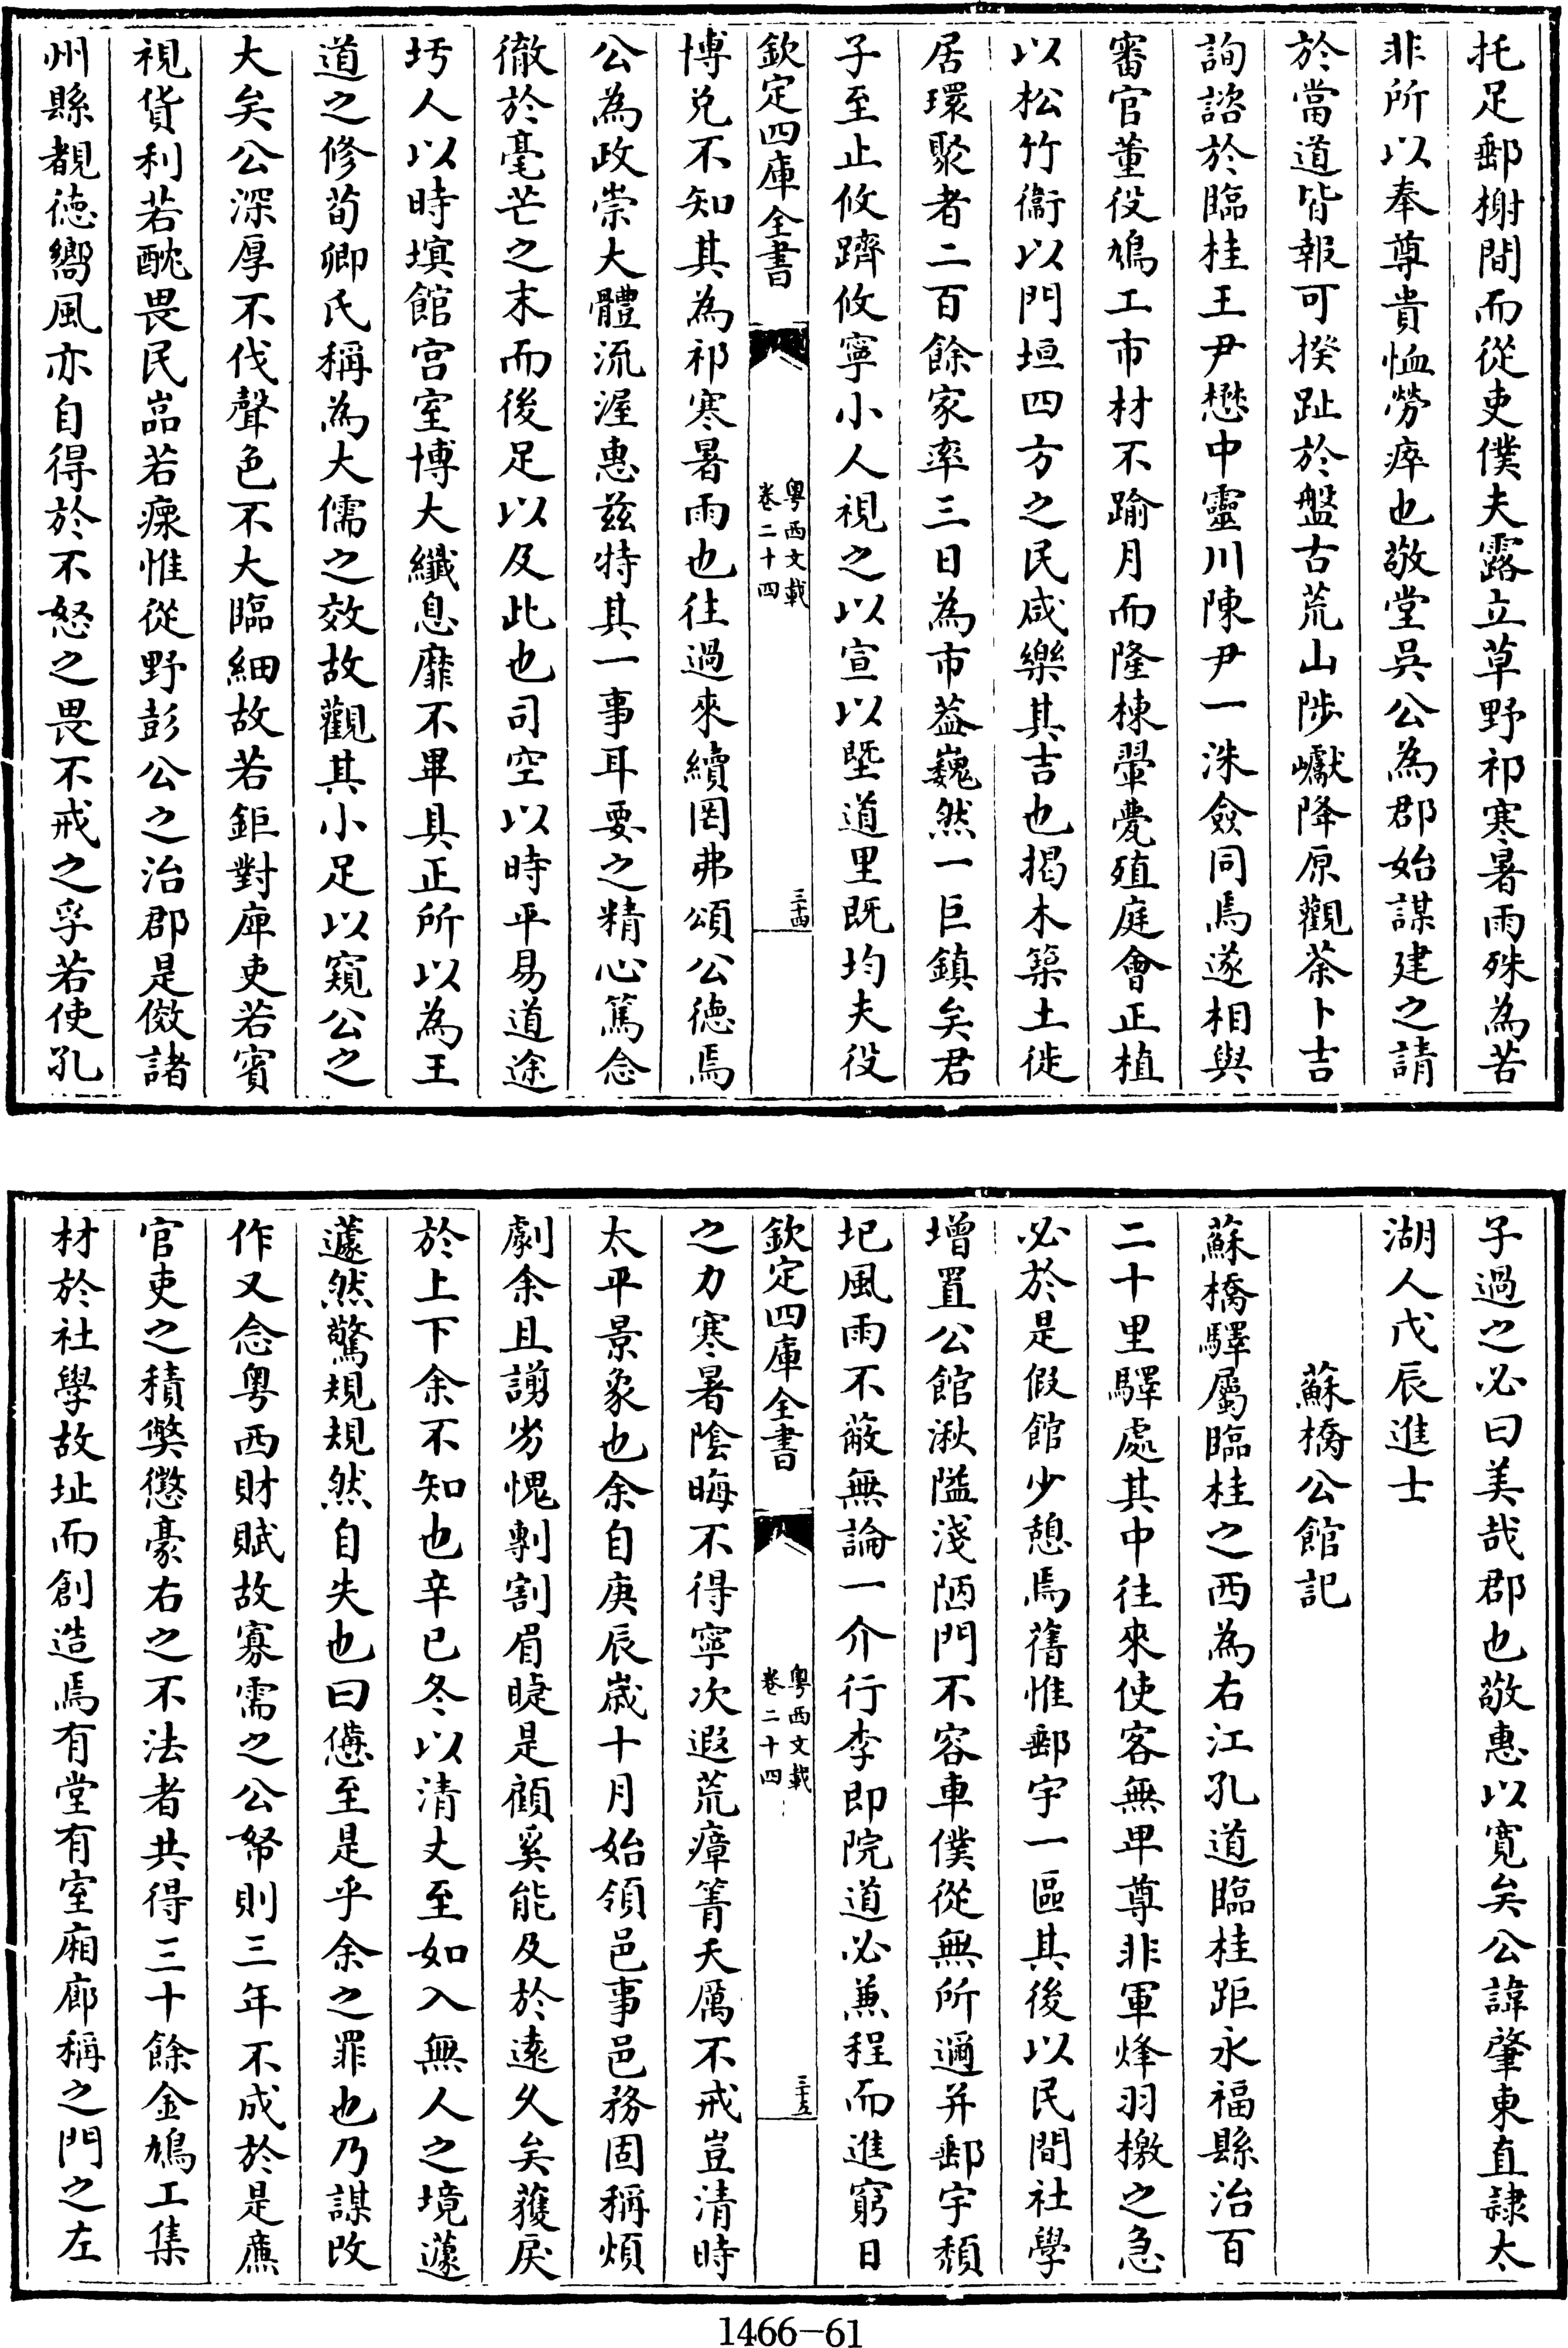 托足郵榭間而從吏僕夫露立草野祁寒暑雨殊為苦
非所以奉尊貴恤勞瘁也敬堂吳公為郡始謀建之請
於當道皆報可揆趾於盤古荒山陟巘降原觀茶卜吉
詢諮於臨桂王尹懋中靈川陳尹一洙僉同焉遂相與
審官董役鳩工市材不踰月而隆棟翬甍殖庭會正植
以松竹衞以門垣四方之民咸樂其吉也揭木築土徙
居環聚者二百餘家率三日為市葢巍然一巨鎮矣君
子至止攸躋攸寧小人視之以宣以墍道里既均夫役
欽定四庫全書
粵西文載
卷二十四
三十四
博兌不知其為祁寒暑雨也往過來續罔弗頌公德焉
公為政崇大體流渥惠兹特其一事耳要之精心篤念
徹於毫芒之末而後足以及此也司空以時平易道途
圬人以時塓館宫室博大纖息靡不畢具正所以為王
道之修荀卿氏稱為大儒之效故觀其小足以窺公之
大矣公深厚不伐聲色不大臨細故若鉅對庫吏若賓
視貨利若酖畏民嵒若瘝惟從野彭公之治郡是傚諸
州縣覩徳嚮風亦自得於不怒之畏不戒之孚若使孔
子過之必曰美哉郡也敬惠以寛矣公諱肇東直隷太
湖人戊辰進士
蘇橋公館記
蘇橋驛屬臨桂之西為右江孔道臨桂距永福縣治百
二十里驛處其中往來使客無卑尊非軍烽羽檄之急
必於是假館少憩焉舊惟郵宇一區其後以民間社學
增置公館湫隘淺陋門不容車僕從無所適并郵宇頽
圯風雨不蔽無論一介行李即院道必兼程而進窮日
欽定四庫全書
粵西文載
卷二十四
三十五
之力寒暑陰晦不得寧次遐荒瘴箐夭厲不戒豈清時
太平景象也余自庚辰嵗十月始領邑事邑務固稱煩
劇余且謭劣愧剸割眉睫是顧奚能及於遠乆矣蓷戾
於上下余不知也辛已冬以清丈至如入無人之境蘧
蘧然驚規規然自失也曰憊至是乎余之罪也乃謀改
作又念粵西財賦故寡需之公帑則三年不成於是廉
官吏之積獘懲豪右之不法者共得三十餘金鳩工集
材於社學故址而創造焉有堂有室廂廊稱之門之左
1466-61